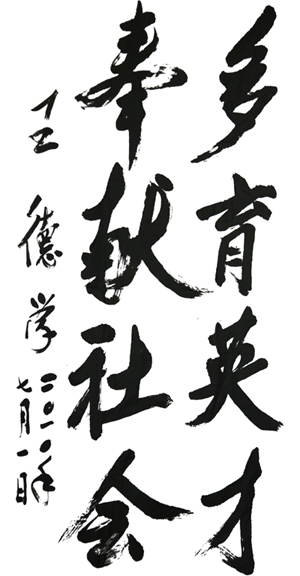 多育英才
奉献社会
王德学
二〇一〇年
七月一日